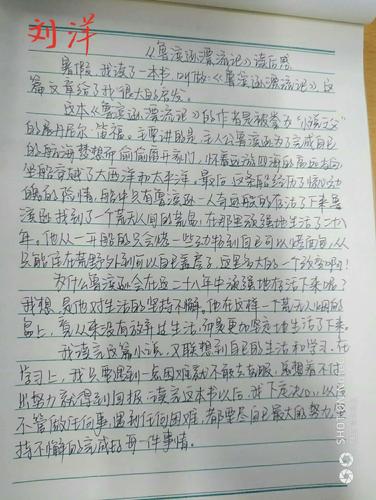 刘洋
《鲁滨逊漂流记》读后感
暑假,我读了一本书,叫做《鲁滨逊漂流记》,这
篇文章给了我很大的启发。
这本《鲁滨逊漂流记》的作者是被拳为“小说之父”
的展丹尼尔·笛福。主要讲的是,主人公鲁滨逊为了完成自己
的航海梦想而偷偷离开家门,怀着远游四海的高远志向,
坐船穿越了大西洋和太平洋。最后,这条船经历了惊心动
魄的险情,船中只有鲁滨逊一人奇迹般的存活了下来。鲁
滨逊找到了一个荒无人烟的荒岛,在那里顽强地生活了二十八
年。他从一开始的只会
只能住在荒野外到可以自己盖房子,这是多大的一个改变啊!
为什么鲁滨逊会在这二十八年中顽强地存活下来呢?
我想,是他对生活的坚持不懈。他在这样一个荒无人烟的
岛上,看从来没有放弃过生活,而是更加坚定地生活了下来。
我读完这篇小说,又联想到自己的生活和学习。在
学习上,我只要遇到一点困难就不敢去克服,总想着不付
出努力就得到回报。读完这本书以后,我下定决心,以后
不管做任何事,遇到任何困难,都要尽自己最大的努力,坚
持不懈的完成好每一件事情。
SHOT ON